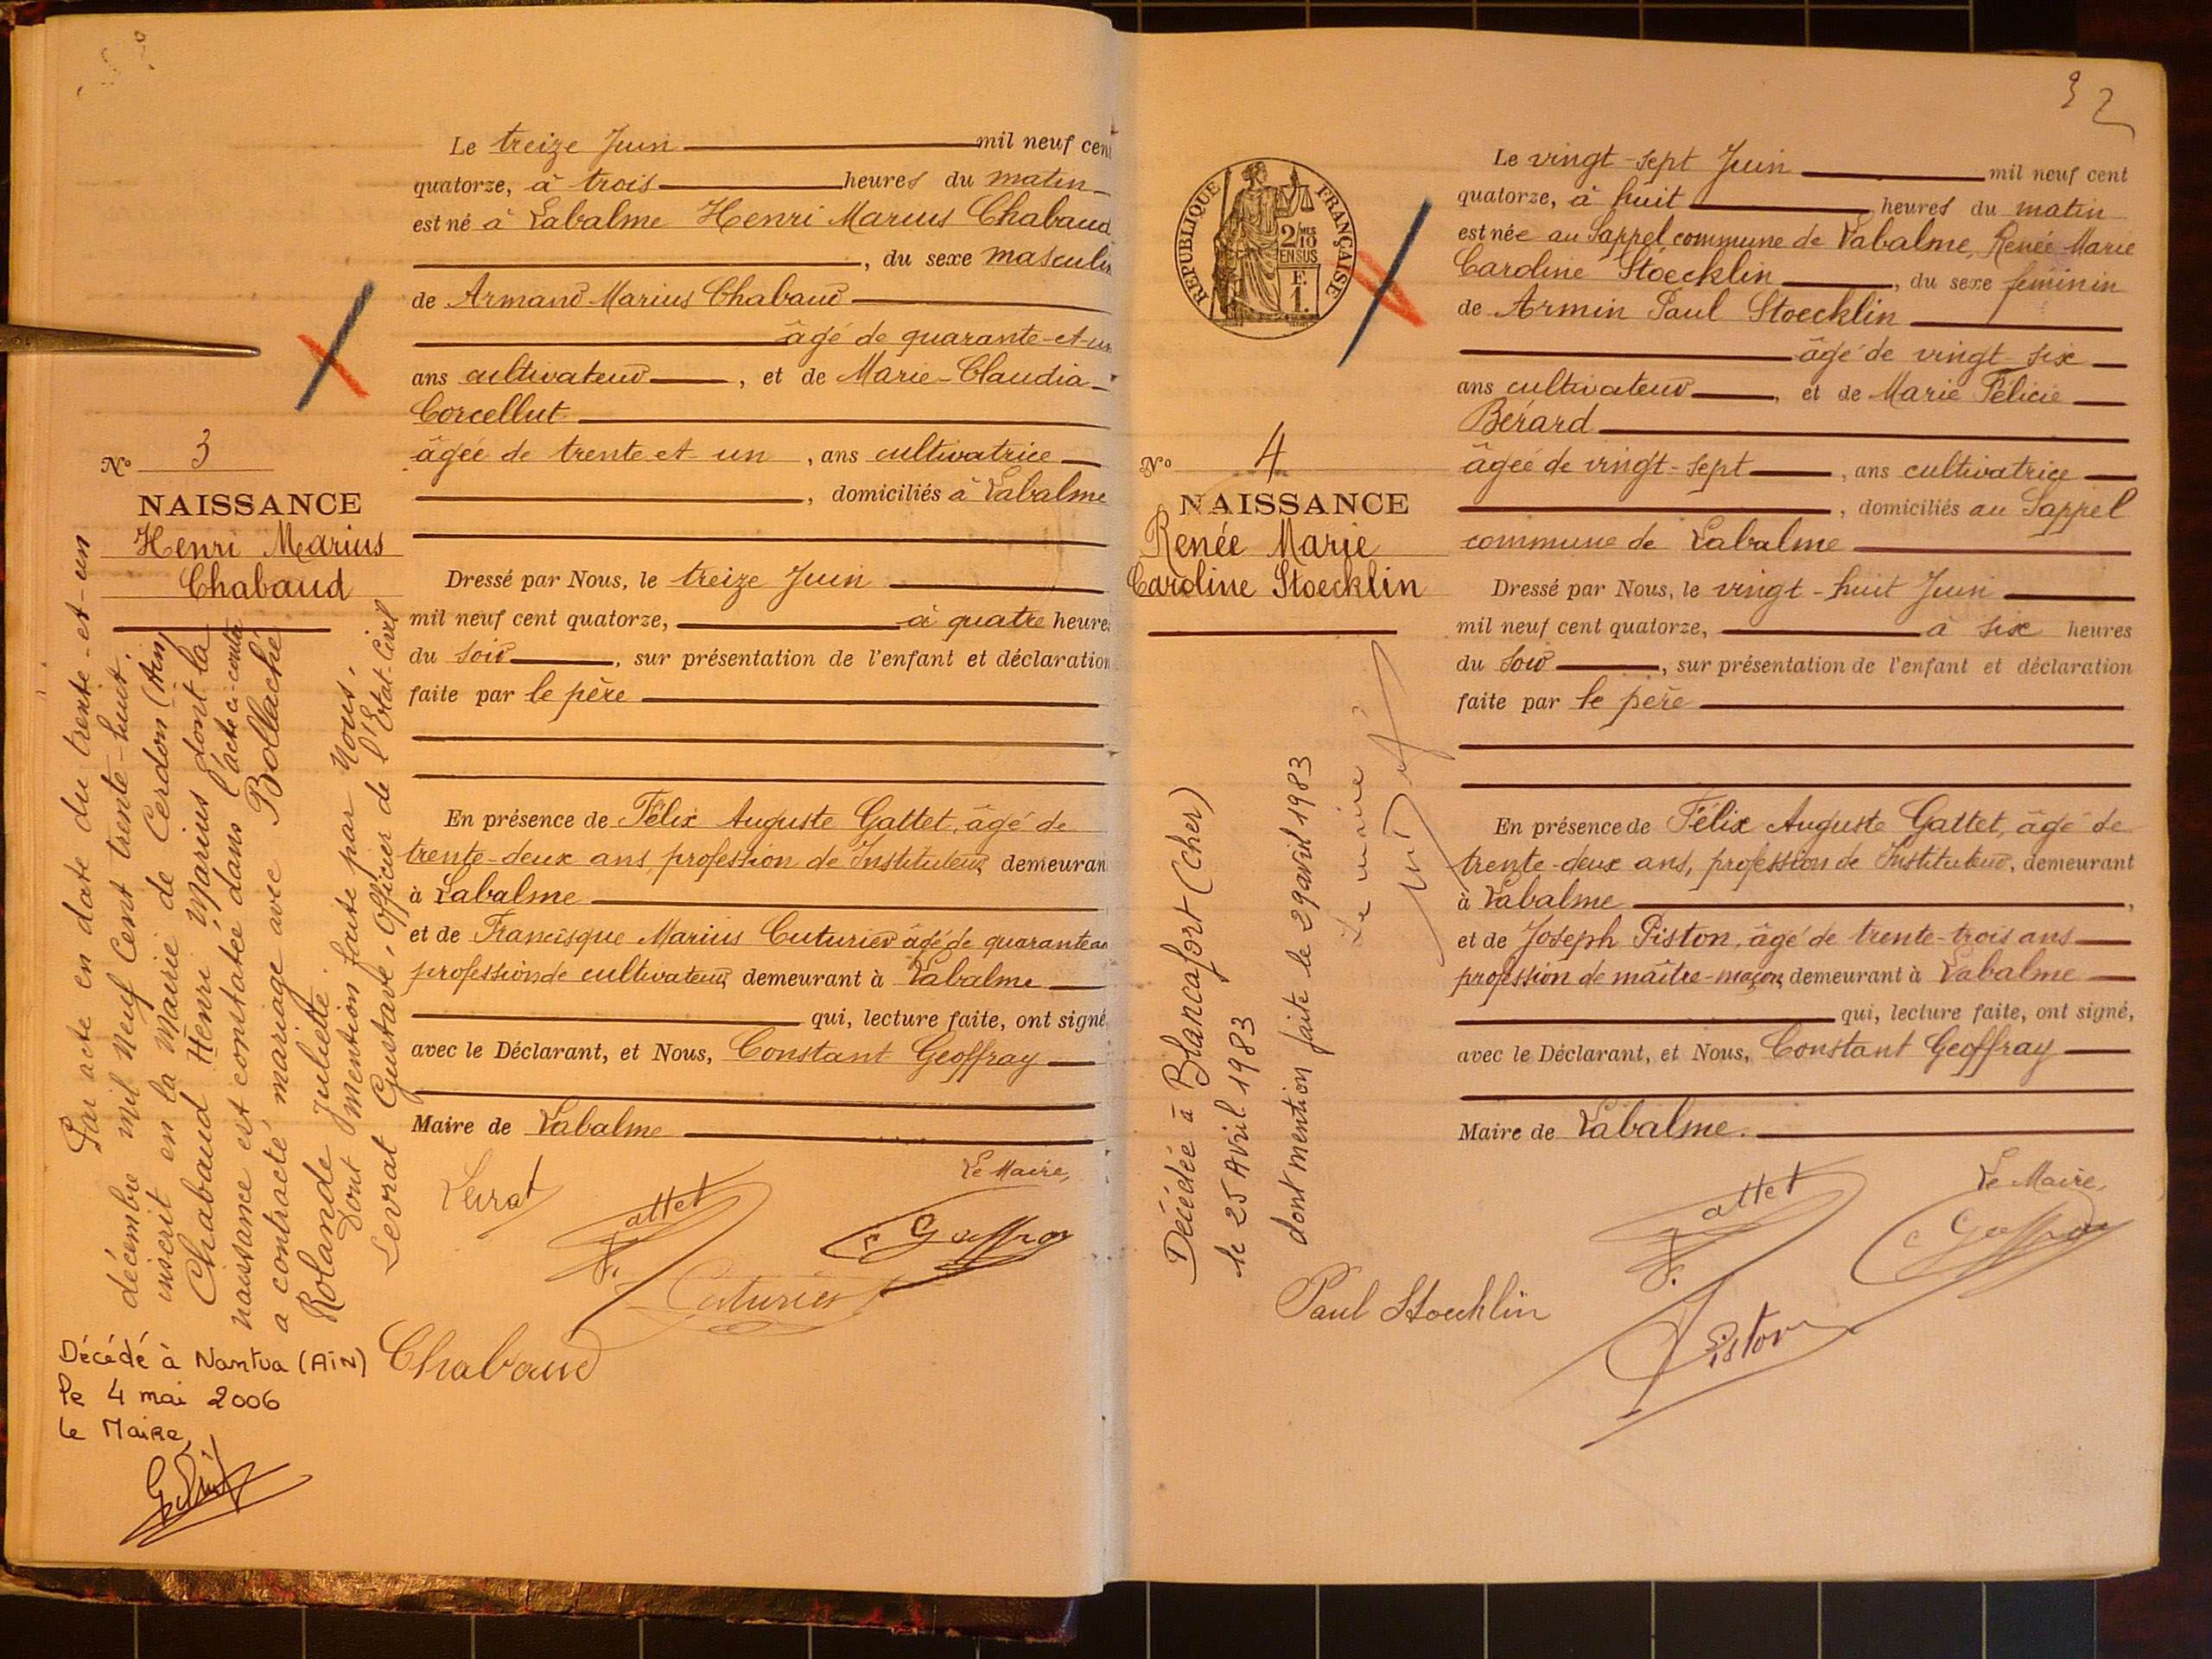 Le treize Juin mil neuf cent
quatorze, à trois heures du matin
est né à Labalme Henri Marius Chabaud
, du sexe masculin
de Armand Marius Chabaud
âgé de quarante-et-un
ans cultivateur, et de Marie-Claudia
Corcellut
âgée de trente et un, ans cultivatrice
, domiciliés à Labalme
Dressé par Nous, le treize Juin
mil neuf cent quatorze, à quatre heures
du soir, sur présentation de l'enfant et déclaration
faite par le père
En présence de Félix Auguste Gattet, âgé de
trente-deux ans, profession de Instituteur, demeurant
à Labalme
et de Francisque Marius Cuturier âgé de quarante ans
profession de cultivateur, demeurant à Labalme
qui, lecture faite, ont signé
avec le Déclarant, et Nous, Constant Geoffray
Maire de Labalme
Le Maire,
Levrat
F. Gattet
C Geoffray
Cuturier
Chabaud
No 3
NAISSANCE
Henri Marius
Chabaud
Par acte en date du trente-et-un
décembre mil neuf cent trente-huit,
inscrit en la Mairie de Cerdon (Ain)
Chabaud Henri Marius dont la
naissance est constatée dans l'acte ci-contre
a contracté mariage avec Bollache
Rolande Juliette.
Dont mention faite par Nous,
Levrat Gustave, Officier de l'Etat-Civil
Décédé à Nantua (AIN)
le 4 mai 2006
Le Maire,
32
REPUBLIQUE FRANÇAISE
2/10
EN SUS
F.
1.
No 4
NAISSANCE
Renée Marie
Caroline Stoecklin
Décédée à Blancafort (Cher)
le 25 Avril 1983
dont mention faite le 29 avril 1983
Le maire
Le vingt-sept Juin mil neuf cent
quatorze, à huit heures du matin
est née au Sappel commune de Labalme, Renée Marie
Caroline Stoecklin, du sexe féminin
de Armin Paul Stoecklin
âgé de vingt-six
ans cultivateur, et de Marie Félicie
Bérard
âgée de vingt-sept, ans cultivatrice
, domiciliés au Sappel
commune de Labalme
Dressé par Nous, le vingt-huit Juin
mil neuf cent quatorze, à six heures
du soir, sur présentation de l'enfant et déclaration
faite par le père
En présence de Félix Auguste Gattet, âgé de
trente-deux ans, profession de Instituteur, demeurant
à Labalme,
et de Joseph Piston, âgé de trente-trois ans
profession de maître-maçon, demeurant à Labalme
qui, lecture faite, ont signé,
avec le Déclarant, et Nous, Constant Geoffray
Maire de Labalme.
Le Maire,
F. Gattet
C Geoffray
Paul Stoecklin
Piston